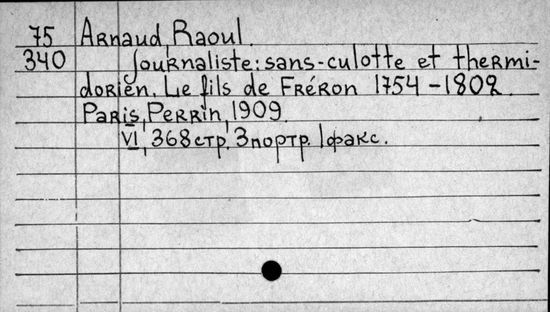 75 Arnaud, Raoul.
340 Journaliste: sans-culotte et thermi-
dorien. Le fils de Fréron 1754-1802.
Paris, Perrin, 1909.
VI, 368 стр. 3 портр. 1 факс.